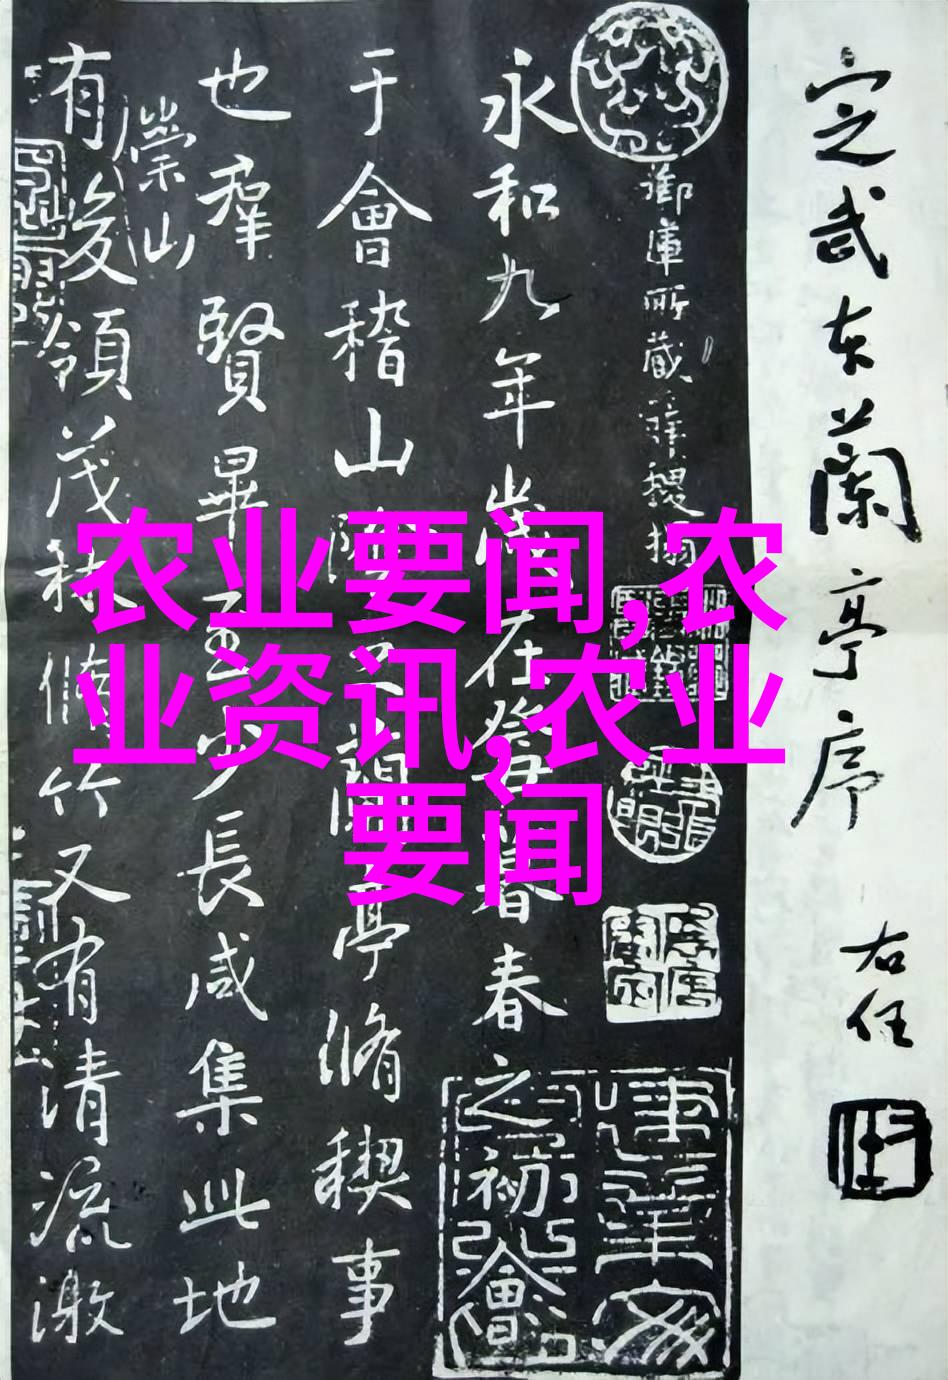 定武本蘭亭序
右任
御庫所藏薛稷搨
永和九年歲在癸丑暮春之初會
于會稽山陰之蘭亭脩稧事
也羣賢畢至少長咸集此地
有崇山峻領茂林脩竹又有清流激
农业要闻,农
业资讯,农业
要闻